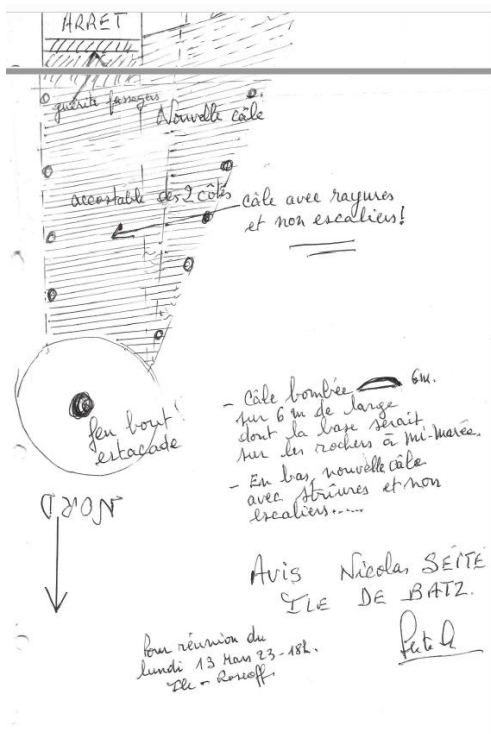 ARRET
guérite passagers
Nouvelle câle
accostable des 2 côtés
câle avec rayures
et non escaliers!
feu bout
estacade
NORD
- Câle bombée 6m.
sur 6 m de large
dont la base serait
sur les rochers à mi-marée.
- En bas, nouvelle câle
avec striures et non
escaliers.....
Avis Nicolas SEITE
ILE DE BATZ.
Pour réunion du
lundi 13 Mars 23-18h.
Ile - Roscoff